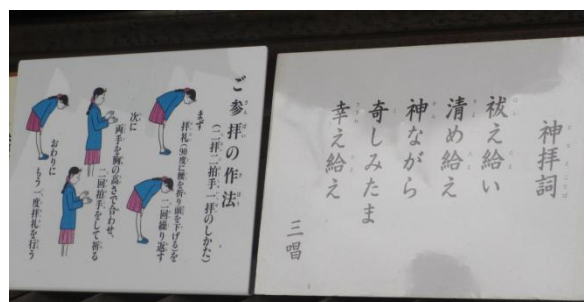 神拝詞
祓え給い
清め給え
神ながら
奇しみたま
幸え給え
三唱
ご参拝の作法
(二拝二拍手一拝のしかた)
まず
拝礼(90度に腰を折り頭を下げる)を
二回繰り返す
次に
両手を胸の高さで合わせ、
二回拍手をして祈る
おわりに
もう一度拝礼を行う